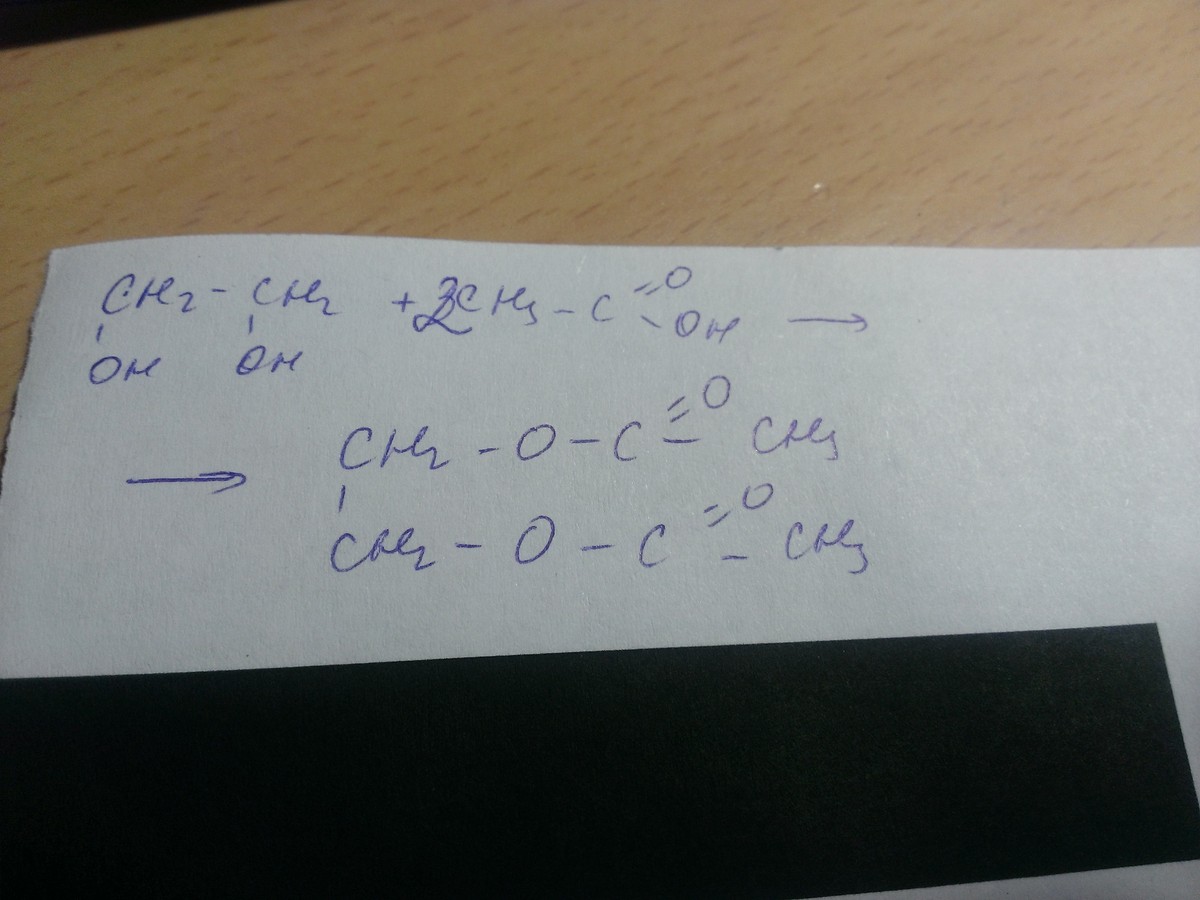 CH₂ - CH₂ + 2CH₃ - C =O - OH →
OH OH
→ CH₂ - O - C =O - CH₃
CH₂ - O - C =O - CH₃